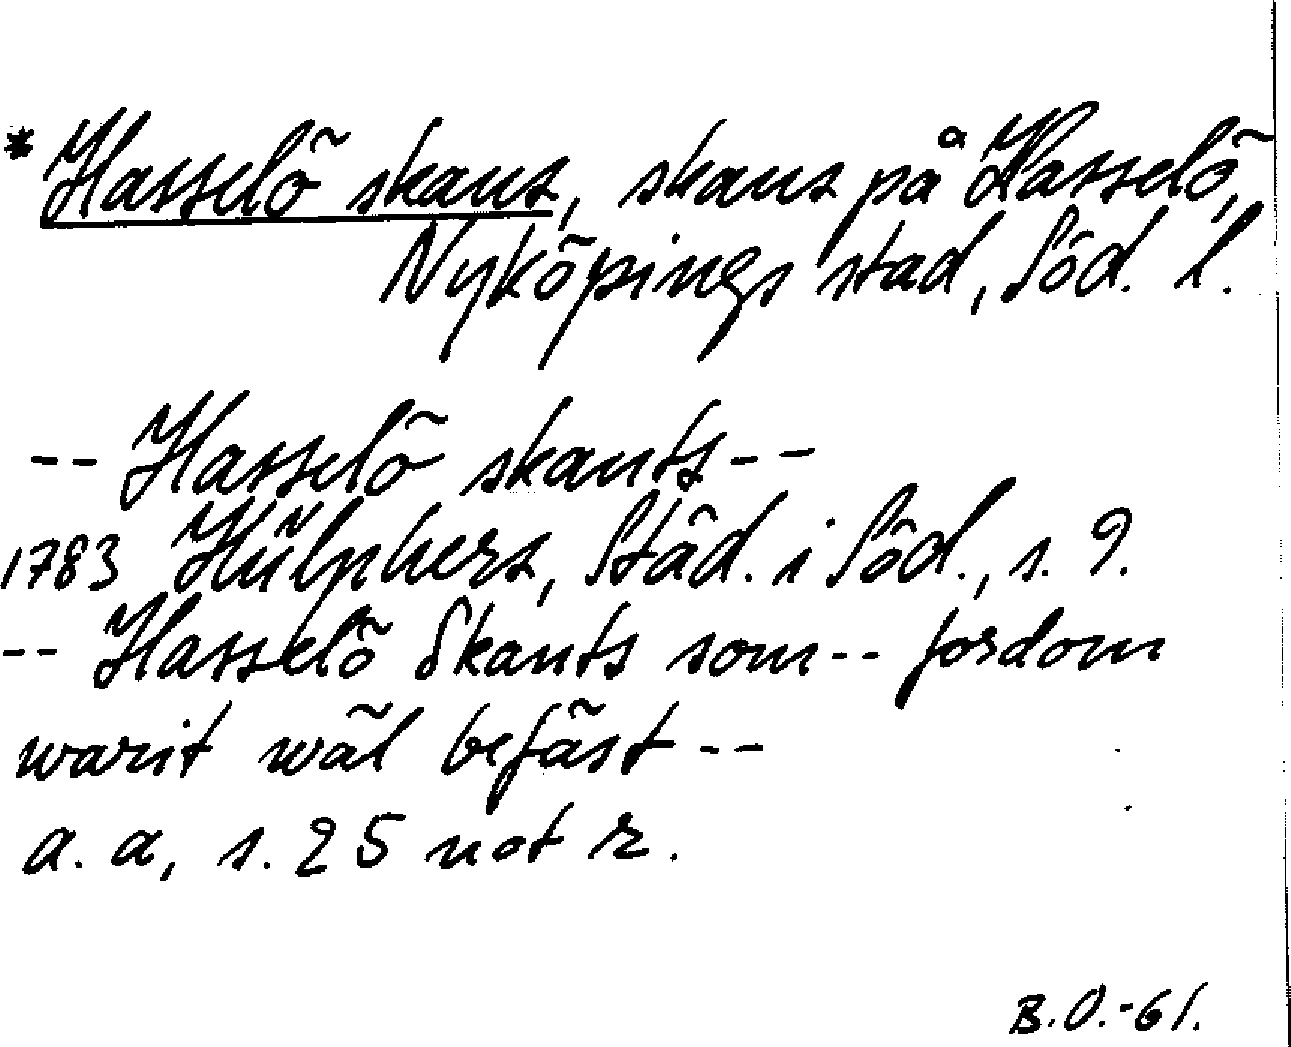 * Hasselö skans, skans på Hasselö,
Nyköpings stad, Söd. l.
-- Hasselö skants --
1783 Hülphers, Städ. i Söd., s. 9.
-- Hasselö Skants som -- fordom
warit wäl befäst --
a. a, s. 25 not r.
B.O.-61.